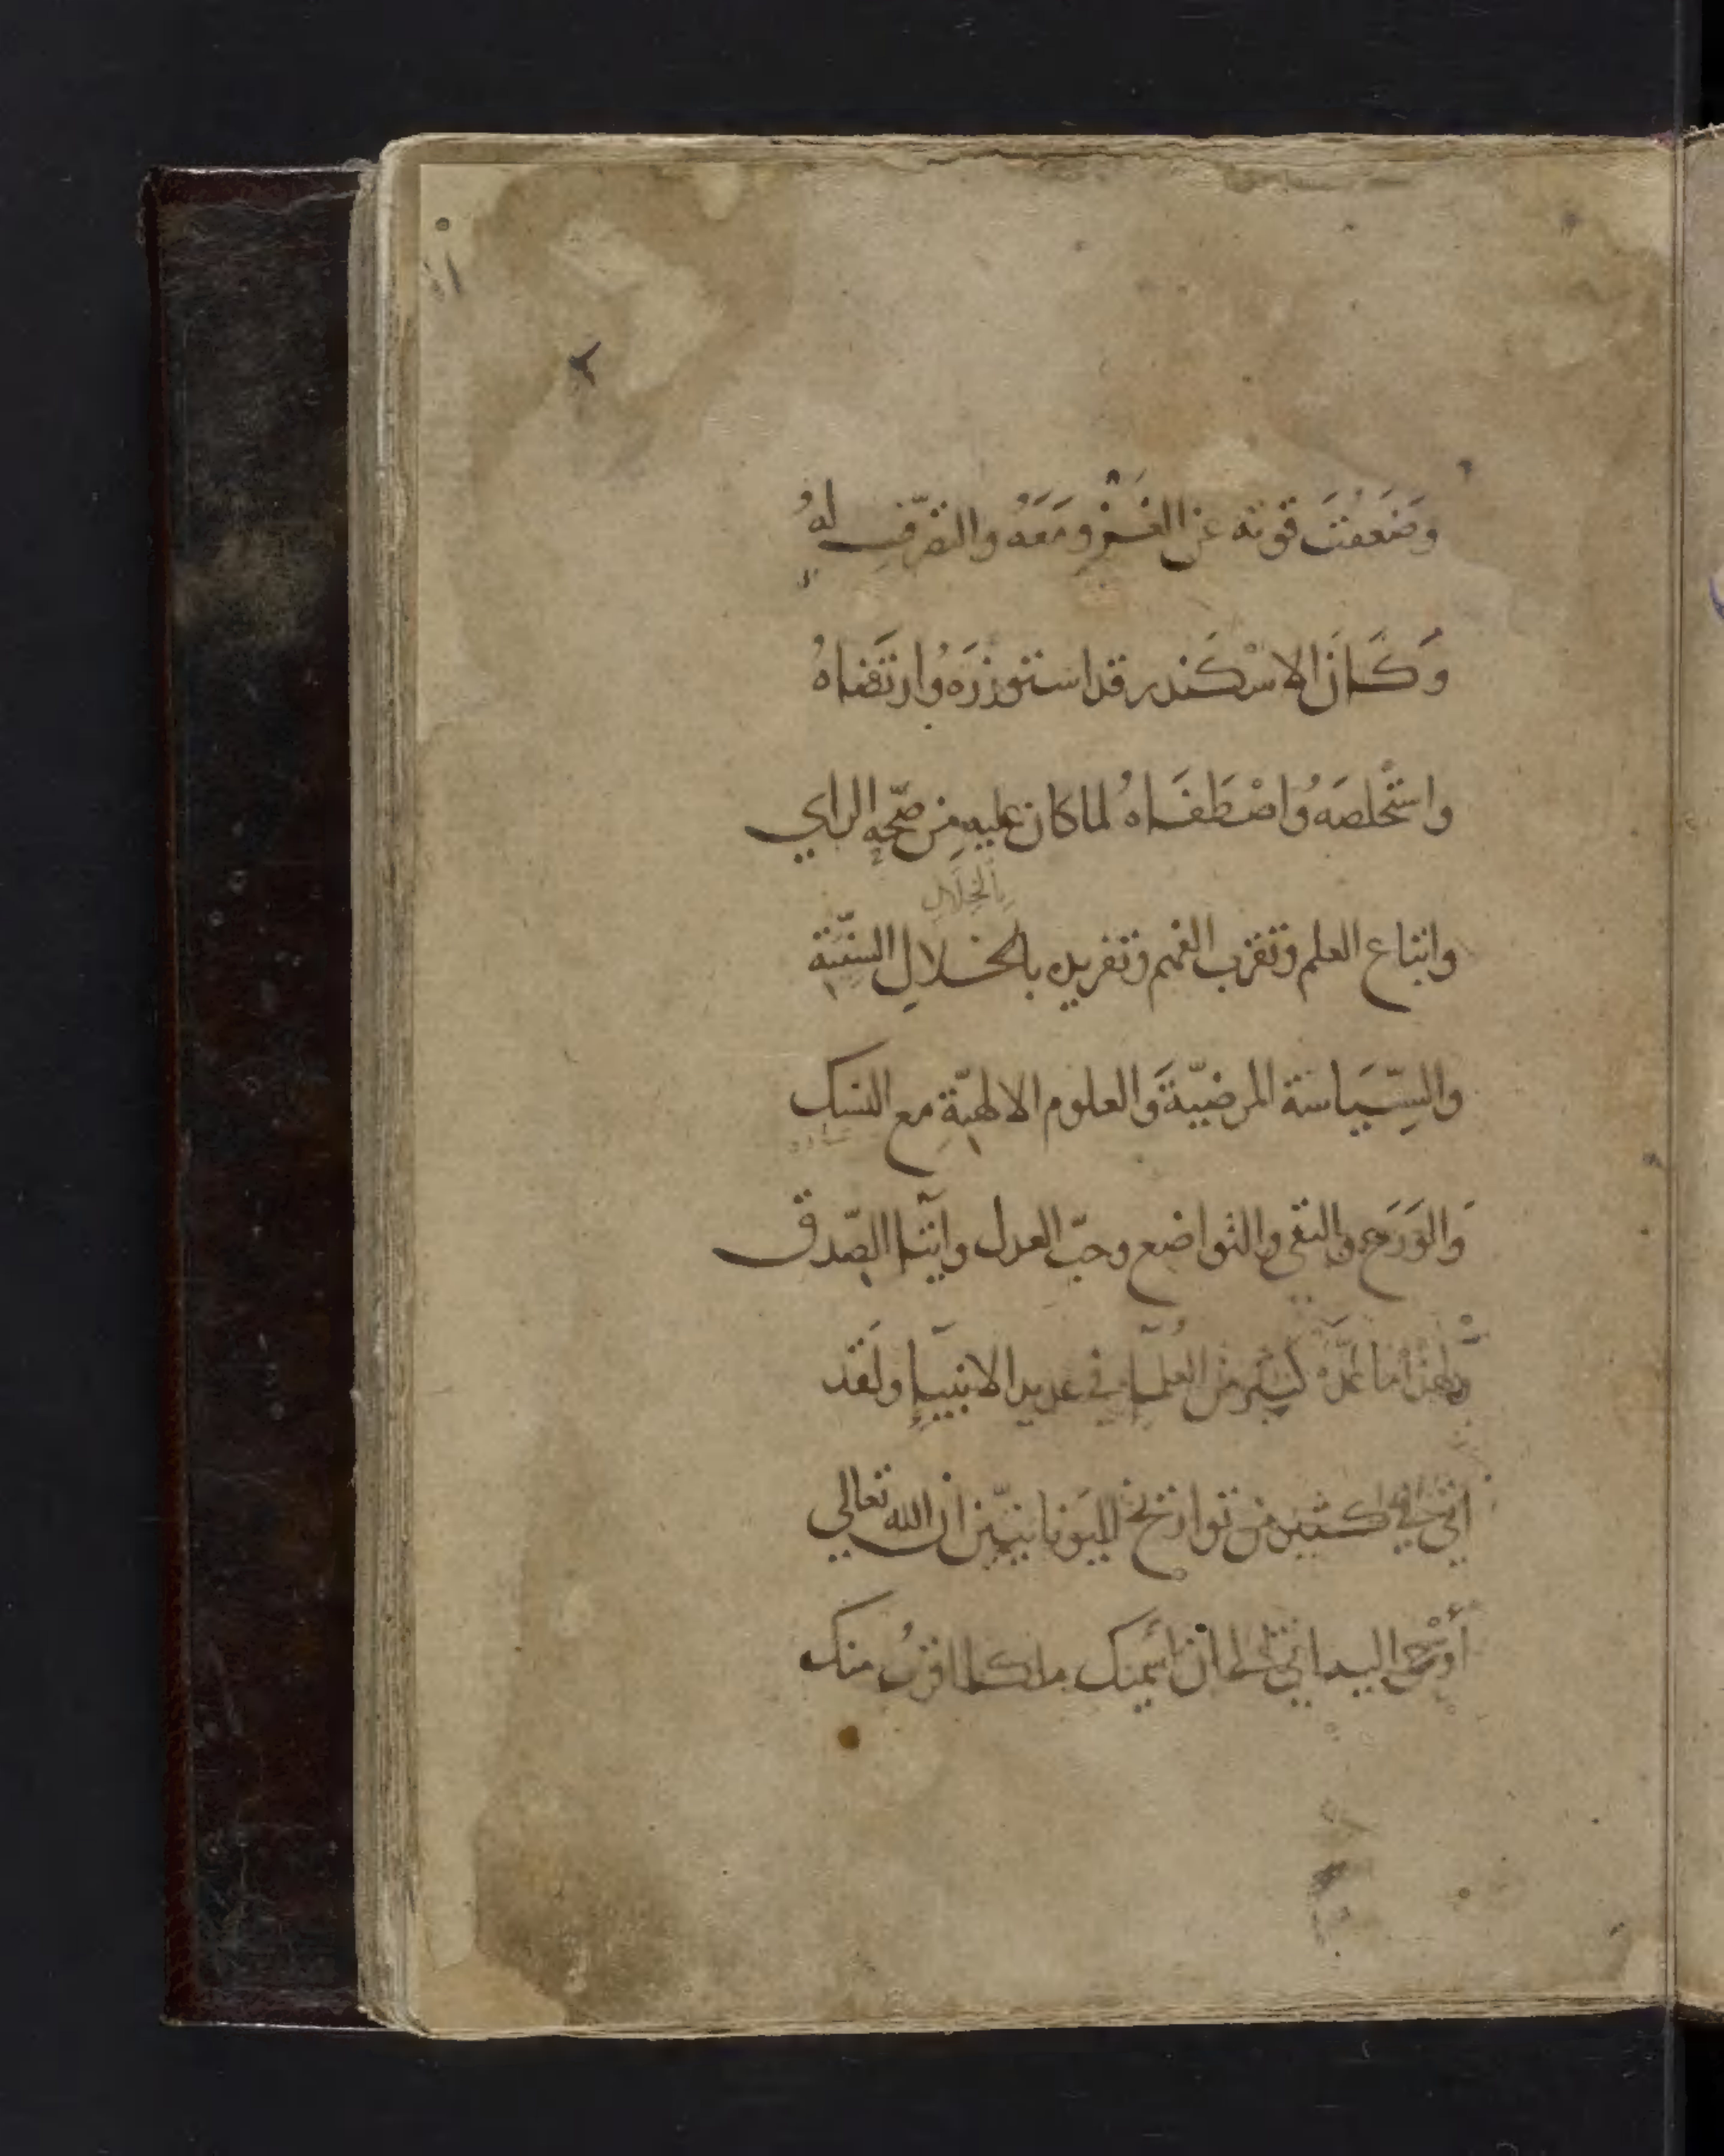 وَضَعُفَتَ قوته عن الغَزْوِ مَعَهُ والتصّرفِ لهُ
وَكَانَ الاسْكَندر قد استوزرَهُ وارتَضاهُ
واستْخلصَهُ واصْطَفَاهُ لما كان عليهِ من صحّةِ الراي
بِالْخِلَالِ
واتباع العلم وتقرب الفهم وتفريده بالخلالِ السَّنِيّة
والسِّيَاسة المرضيّة وَالعلوم الالهيّةِ مع النسك
وَالوَرَعِ والتقى والتواضع وحبّ العدل وايثار الصّدق
ولهذا ما عَدَّهُ كثير من العُلمآءِ في عديد الانبيآءِ ولَقَد
اتى في كثير من تواريخ اليَونانيّين ان الله تعالي
أَوْحى اليه اني الى ان اسميك ملكا اقربُ منك